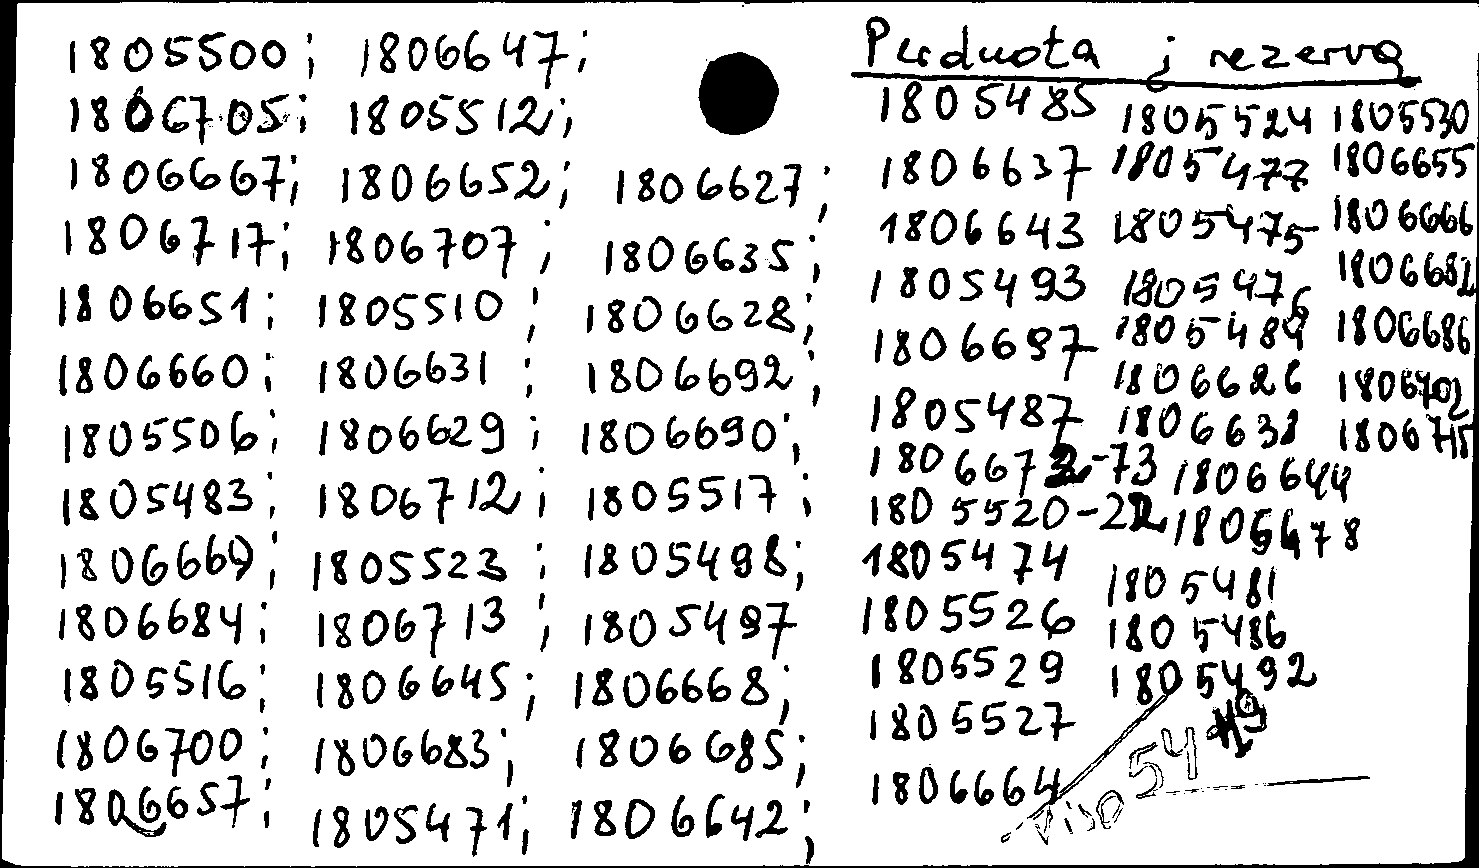 1805500; 1806647;
1806705; 1805512;
1806667; 1806652; 1806627;
1806717; 1806707; 1806635;
1806651; 1805510; 1806628;
1806660; 1806631; 1806692;
1805506; 1806629; 1806690;
1805483; 1806712; 1805517;
1806669; 1805523; 1805498;
1806684; 1806713; 1805497
1805516; 1806645; 1806668;
1806700; 1806683; 1806685;
1806657; 1805471; 1806642;
Perduota į rezervą
1805485 1805524 1805530
1806637 1805477 1806655
1806643 1805475 1806666
1805493 1805476
1806697 1805484 1806686
1805487 1806626 1806702
1806638 1806715
1806644
1805520-22 1805478
1805474 1805481
1805526 1805486
1805529 1805492
1805527
1806664
Viso 54